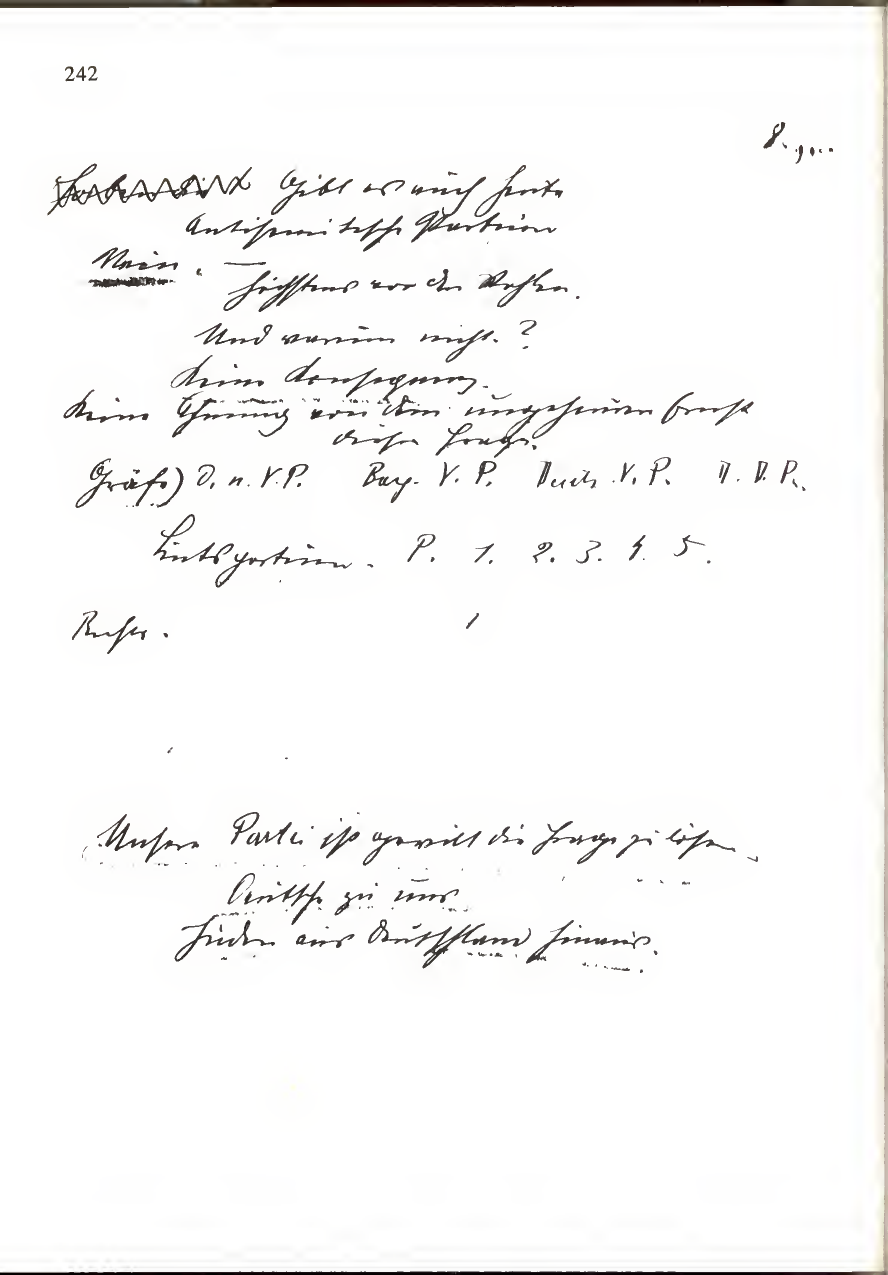 242
8.
Gibt es auch heute
Antisemitische Parteien
Nein. —
höchstens vor den Wahlen.
Und warum nicht.?
Keine Konsequenz.
Keine Ahnung von dem ungeheuren Ernst
dieser Frage.
Gräfe) D. n. V.P. Bay. V. P. Deuts. V. P. D. D. P.
Linksparteien. P. 1. 2. 3. 4. 5.
Rechts.
Unsere Partei ist gewillt die Frage zu lösen
Deutsche zu uns
Juden aus Deutschland hinaus.